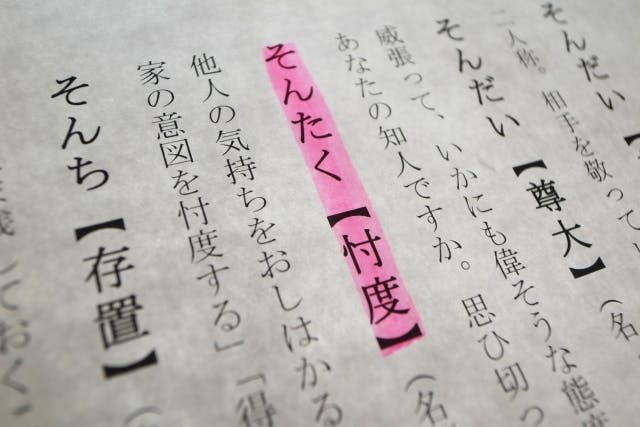 そんだい【
二人称。相手を敬って
そんだい【尊大】(名
威張って、いかにも偉そうな態度
あなたの知人ですか。思ひ切っ
そんたく【忖度】(名
他人の気持ちをおしはかる
家の意図を忖度する」「得
そんち【存置】(
しておく